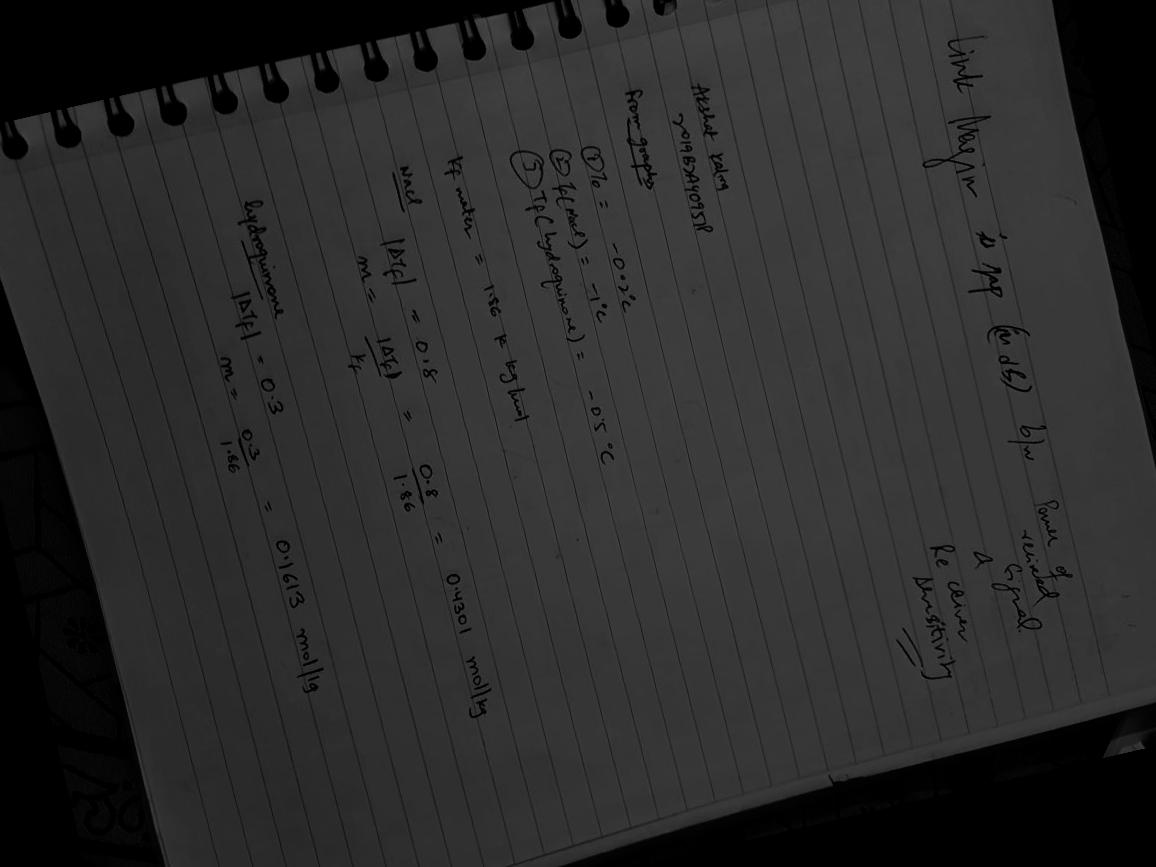 Link Margin is gap (in dB) b/w Power of
recieved
Signal.
&
Receiver
Sensitivity
Akshat Kalra
2019B2A40951P
From graphs
① T₀ = -0.2°C
② Tf(NaCl) = -1°C
③ Tf(hydroquinone) = -0.5°C
Kf water = 1.86 K kg/mol
NaCl
|ΔTf| = 0.8
m = |ΔTf| / Kf = 0.8 / 1.86 = 0.4301 mol/kg
hydroquinone
|ΔTf| = 0.3
m = 0.3 / 1.86 = 0.1613 mol/kg